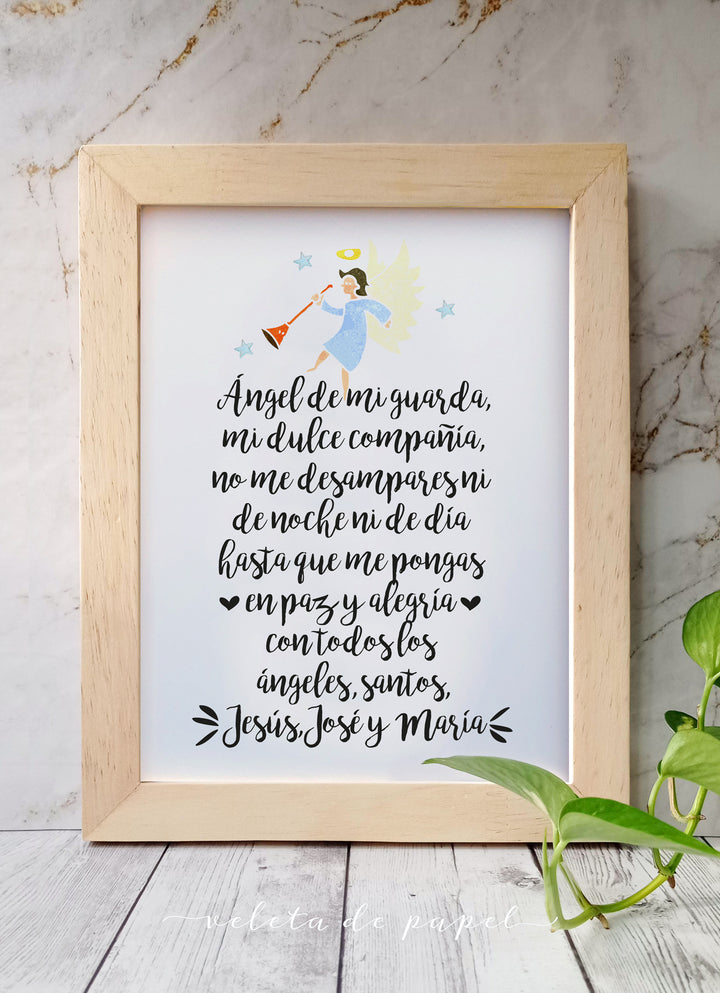 Ángel de mi guarda,
mi dulce compañía,
no me desampares ni
de noche ni de día
hasta que me pongas
en paz y alegría
con todos los
ángeles, santos,
Jesús, José y María
veleta de papel